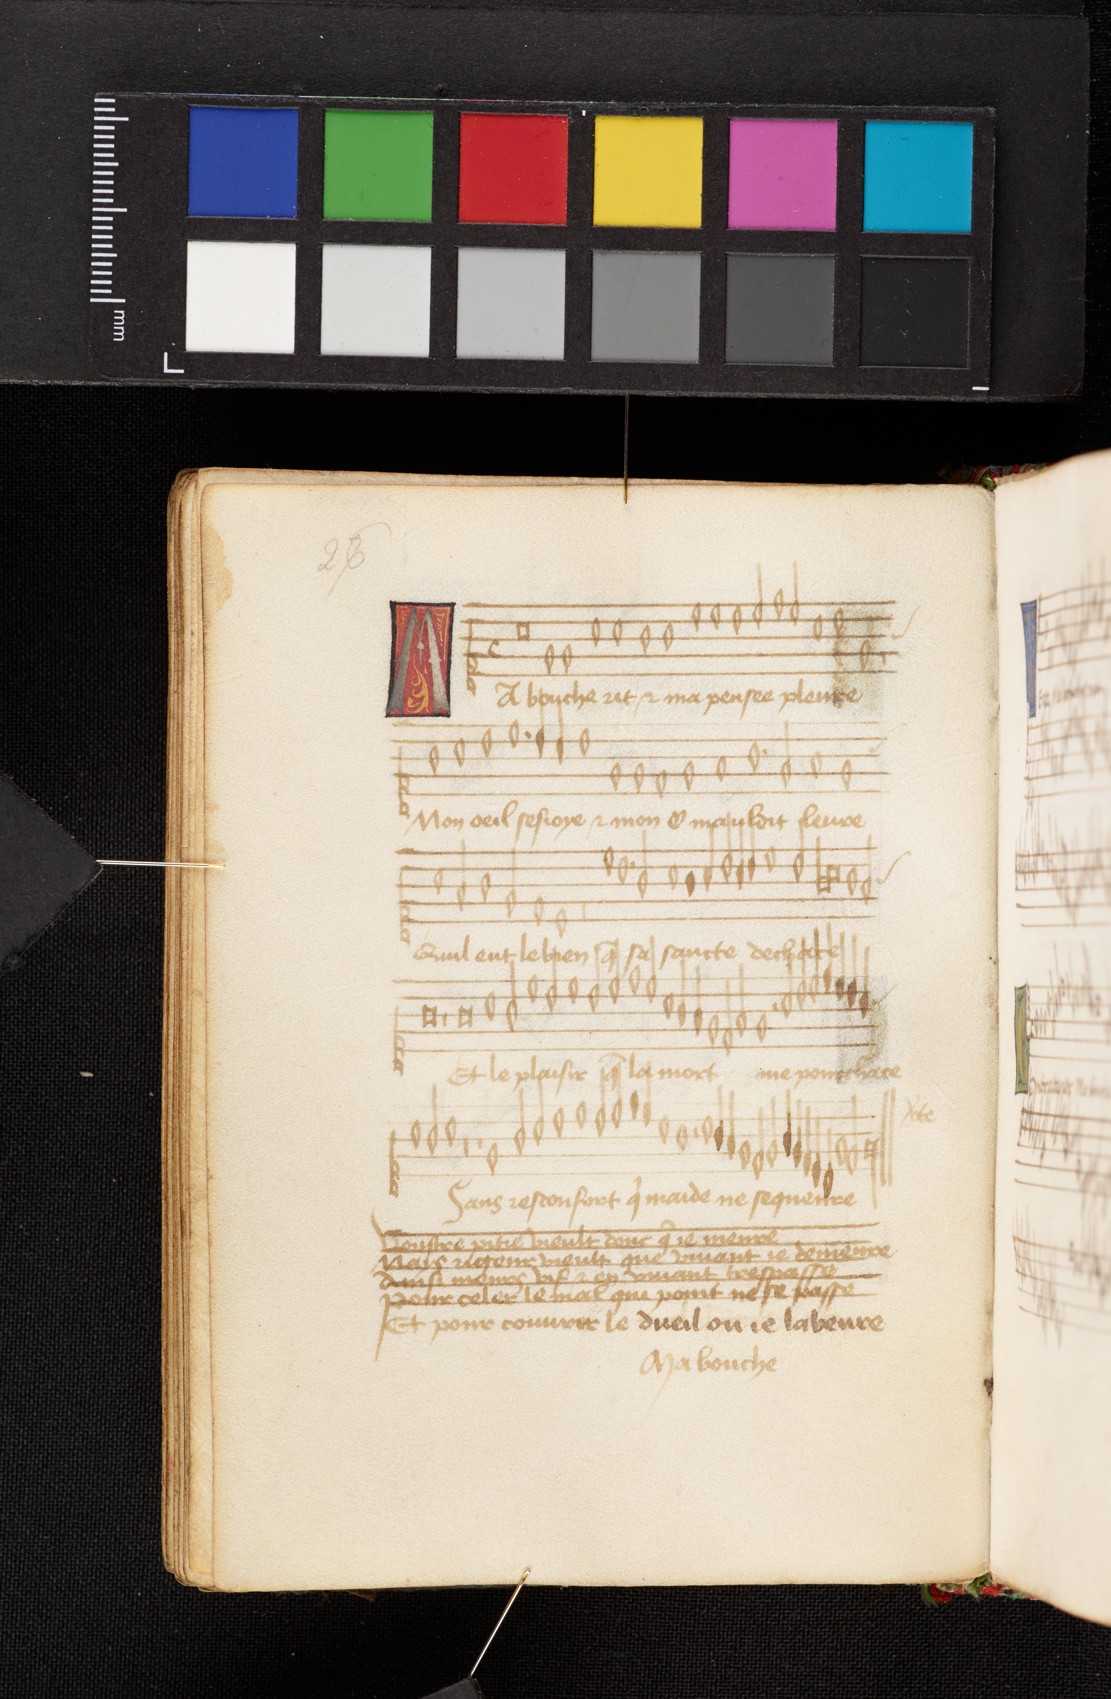 mm
26
A bouche rit ⁊ ma pensee pleure
Mon oeil sesioye ⁊ mon mauldit leure
Quil eut le bien q̄ sa sancte dechace
Et le plaisir q̄ la mort me pourchace
Sans resconfort q̇ maide ne sequeure
Voustre pitie vieult donc q̄ ie meure
Mais rigeur vieult que vivant ie demeure
Ainsi meurs vif ⁊ en vivant trespasse
Pour celer le mal qui point ne se passe
Et pour couvrir le dueil ou ie labeure
Ma bouche